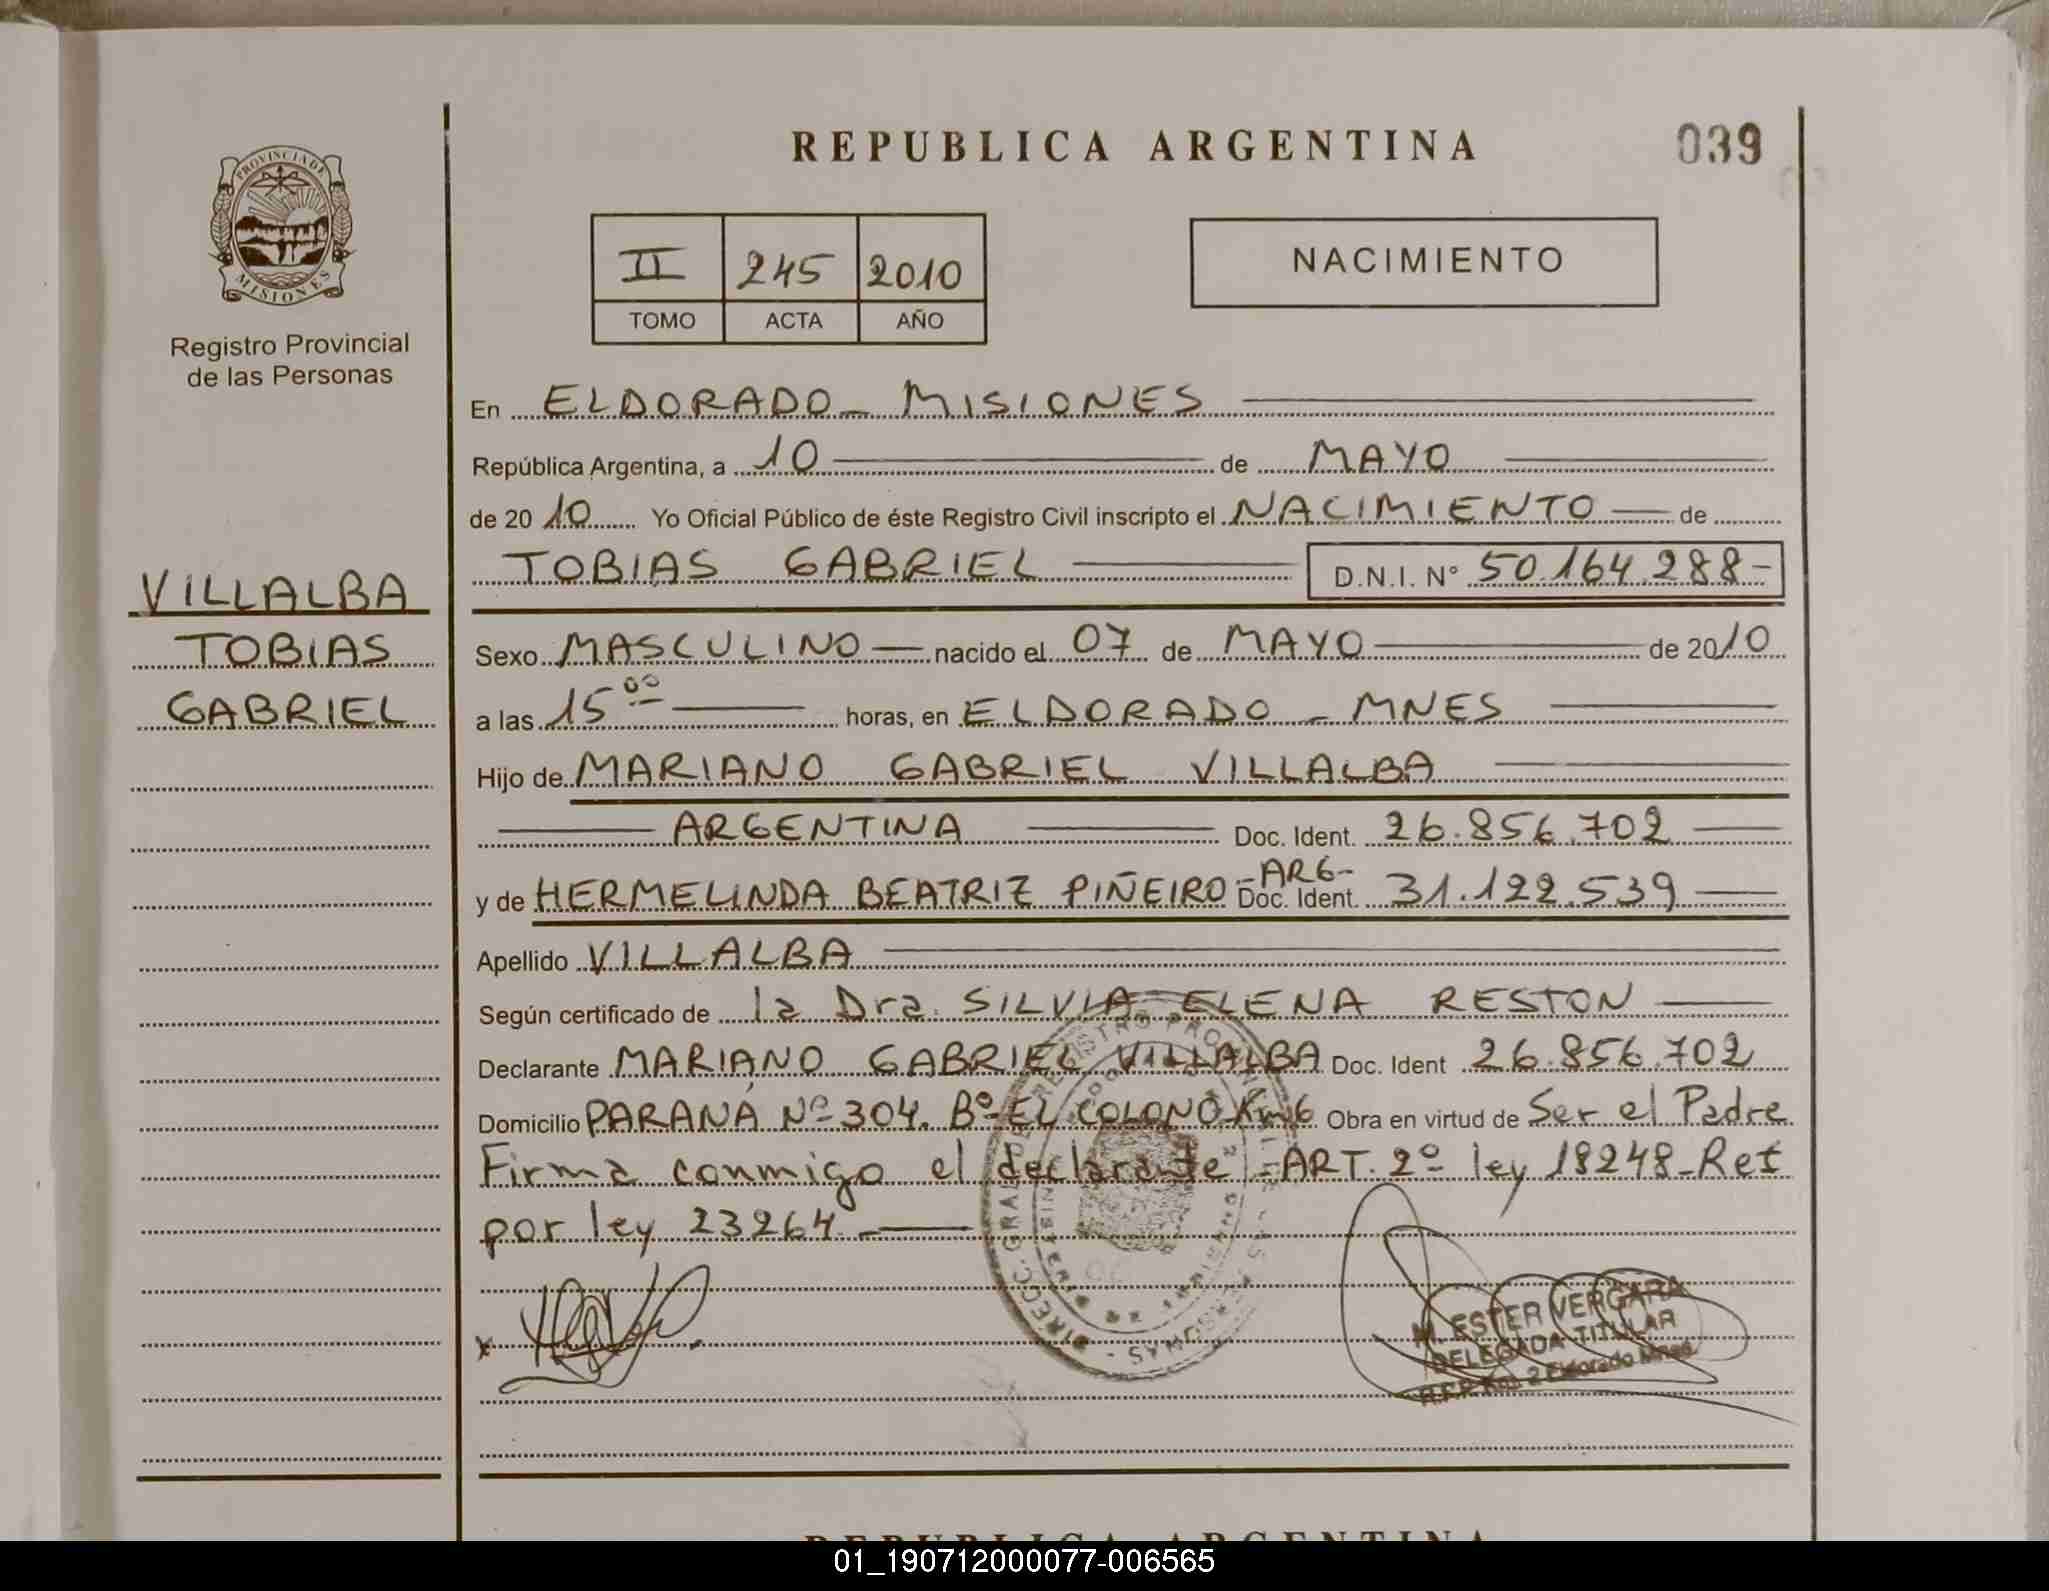 REPUBLICA ARGENTINA
039
PROVINCIA DE
MISIONES
Registro Provincial
de las Personas
II 245 2010
TOMO ACTA AÑO
NACIMIENTO
En ELDORADO - MISIONES
República Argentina, a 10 de MAYO
de 2010 Yo Oficial Público de éste Registro Civil inscripto el NACIMIENTO de
TOBIAS GABRIEL D.N.I. N° 50.164.288-
VILLALBA
TOBIAS
GABRIEL
Sexo MASCULINO nacido el 07 de MAYO de 2010
a las 15 00 horas, en ELDORADO - MNES
Hijo de MARIANO GABRIEL VILLALBA
ARGENTINA Doc. Ident. 26.856.702
y de HERMELINDA BEATRIZ PIÑEIRO -ARG- Doc. Ident. 31.122.539
Apellido VILLALBA
Según certificado de la Dra. SILVIA ELENA RESTON
Declarante MARIANO GABRIEL VILLALBA Doc. Ident 26.856.702
Domicilio PARANÁ Nº 304. Bº EL COLONO Km6 Obra en virtud de Ser el Padre
Firma conmigo el declarante - ART. 2º ley 18248-Ref
por ley 23264.-
M. ESTER VERGARA
DELEGADA TITULAR
R.P.P. Km. 2 Eldorado Mnes.
REPUBLICA ARGENTINA
01_190712000077-006565